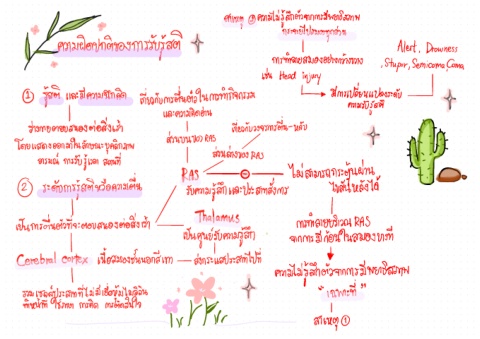 ความผิดปกติของการรับรู้สติ
① รู้สติ และมีความรู้สึกคิด
ร่างกายตอบสนองต่อสิ่งเร้า
โดยแสดงออกมาในลักษณะบุคลิกภาพ
อารมณ์ การรับรู้เวลา สถานที่
② ระดับการรู้สติหรือความตื่น
เป็นการตื่นตัวที่จะตอบสนองต่อสิ่งเร้า
Cerebral cortex เนื้อสมองชั้นนอกสีเทา
รวมเซลล์ประสาทที่ไม่มีเยื่อหุ้มไมอีลิน
ทำหน้าที่ ใช้ภาษา การคิด การตัดสินใจ
เกี่ยวกับการตื่นตัวในการทำกิจกรรม
และความคิดอ่าน
ส่วนบนของ RAS
เกี่ยวกับวงจรการตื่น-หลับ
ส่วนล่างของ RAS
RAS
รับความรู้สึกและประสาทสั่งการ
Thalamus
เป็นศูนย์รับความรู้สึก
ส่งกระแสประสาทไปที่
สาเหตุ ② ความไม่รู้สึกตัวจากการมีพยาธิสภาพ
กระจายไปรอบๆทุกส่วน
การทำลายสมองอย่างกว้างขวาง
เช่น Head injury
มีการเปลี่ยนแปลงระดับ
ความรู้สติ
Alert, Drowness,
Stupor, Semicoma, Coma
ไม่สามารถกระตุ้นผ่าน
ไปสั่งหลังได้
การทำลายบริเวณ RAS
จากการมีก้อนในสมองทางที่
ความไม่รู้สึกตัวจากการมีพยาธิสภาพ
"เฉพาะที่"
สาเหตุ ①